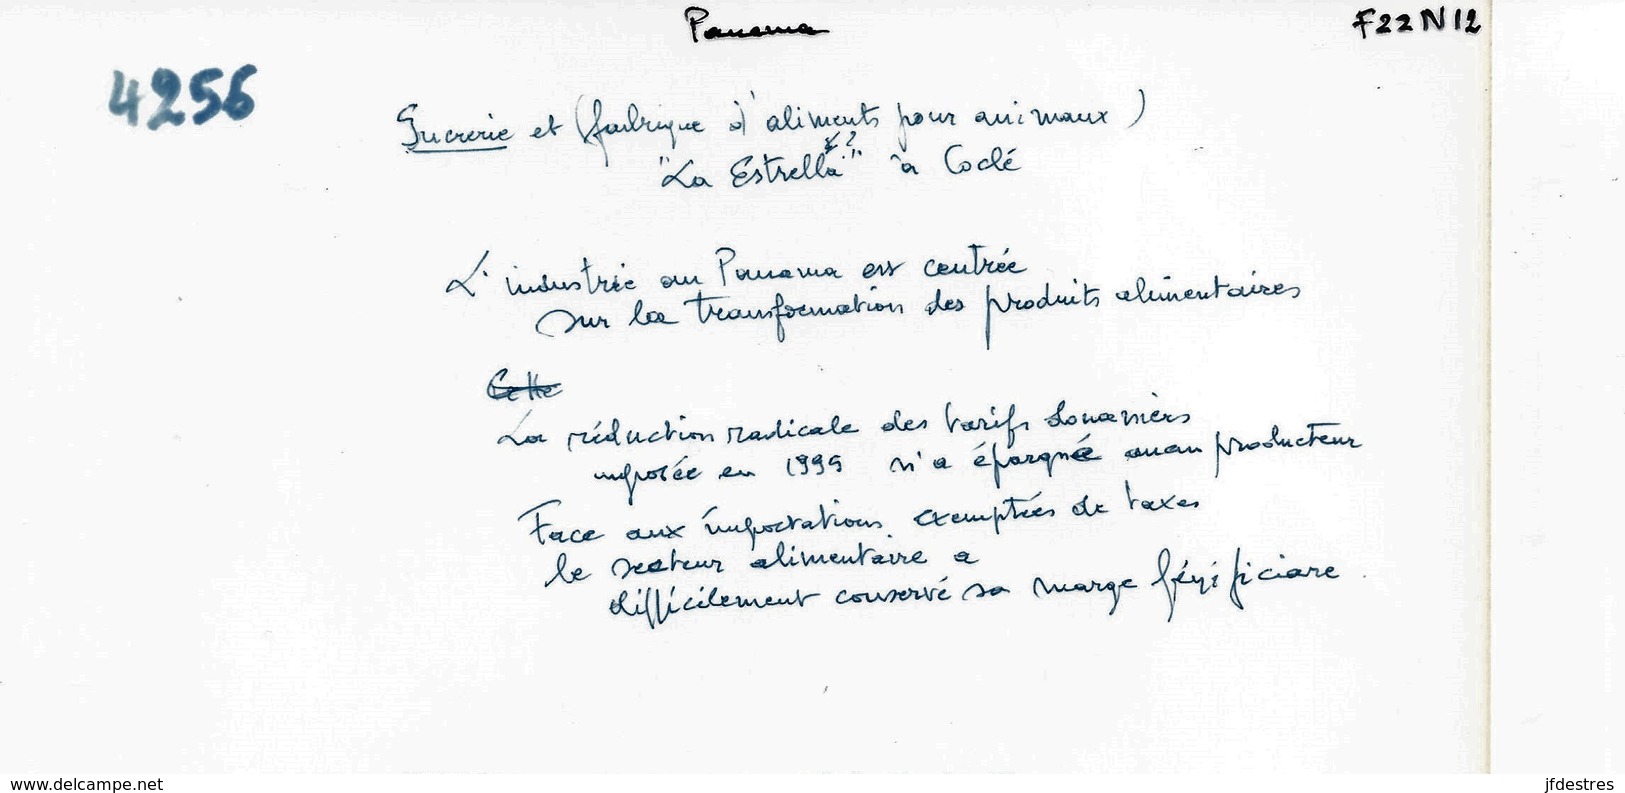 Panama
F22N12
4256
Sucrerie et (fabrique d'aliments pour animaux)
"La Estrella" à Coclé
L'industrie au Panama est centrée
sur la transformation des produits alimentaires
Cette
La réduction radicale des tarifs douaniers
imposée en 1995 n'a épargnée aucun producteur
Face aux importations exemptées de taxes
le secteur alimentaire a
difficilement conservé sa marge bénéficiare
www.delcampe.net
jfdestres